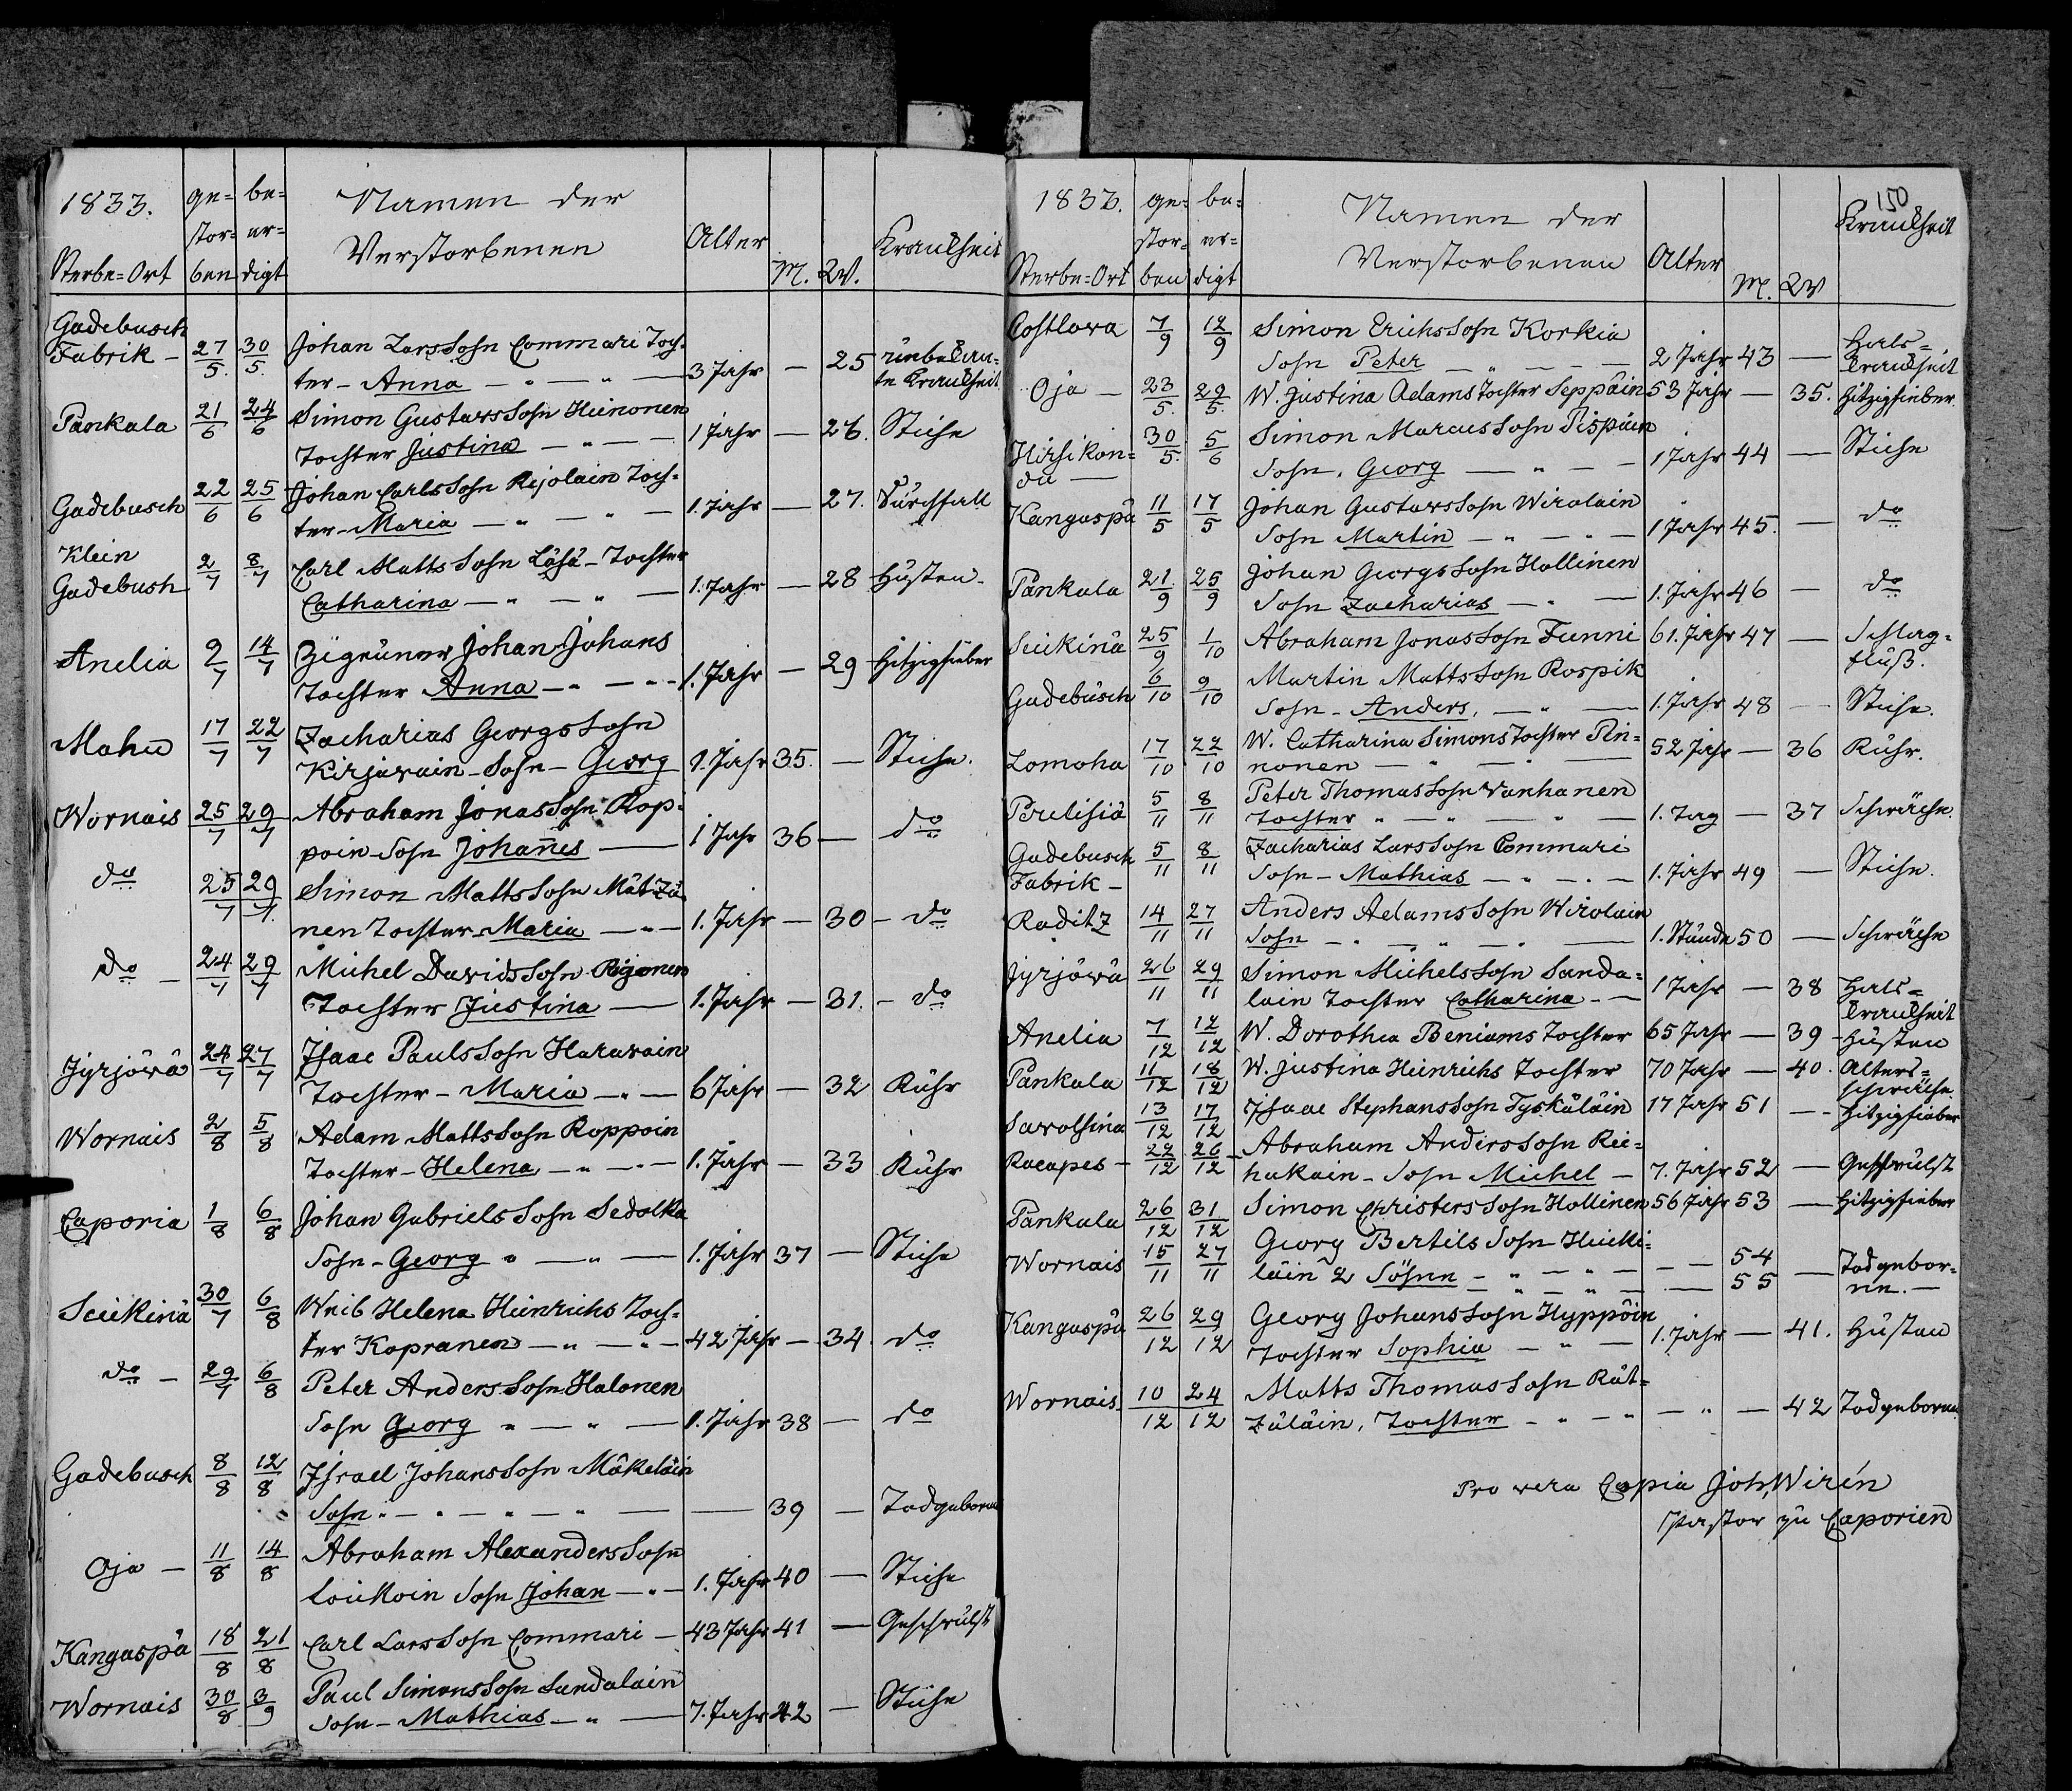 1833.
ge= be=
stor= er=
Sterbe=Ort ben digt
Namen der
Verstorbenen
Alter
M. W.
Krankheit
Gadebusch
Fabrik — 27/5. 30/5. Johan Larssohn Commari Toch=
ter – Anna — " — " — 3 Jahr — 25 unbekan=
te Krankheit.
Pankala 21/6 24/6 Simon Gustavssohn Heinonen
Tochter Justina — " — — 1 Jahr — 26. Stiche
Gadebusch 22/6 25/6 Johan Carlssohn Rejolain Toch=
ter – Maria — " — " — 1. Jahr — 27. Durchfall
Klein
Gadebush 2/7 8/7 Carl Matts Sohn Läsä – Tochter
Catharina — " — " — 1. Jahr — 28 Husten –
Anelia 9/7 14/7 Zigeuner Johan Johans
Tochter Anna — " — " – 1. Jahr — 29 Hitzigfieber
Mahu 17/7 22/7 Zacharias Georgssohn
Kirjawain – Sohn – Georg 1. Jahr 35. — Stiche.
Wornais 25/7 29/7 Abraham Jonassohn Rop=
poin – Sohn Johannes — 1 Jahr 36 — do
do 25/7 29/7. Simon Mattssohn Mätzä
nen Tochter – Maria — " — 1. Jahr — 30 – do
do — 24/7 29/7 Michel Davidssohn Rigonen
Tochter Justina — 1. Jahr — 31. – do
Jyrjöwä 24/7 27/7 Isaac Paulssohn Harawain
Tochter – Maria — " — 6 Jahr — 32 Ruhr
Wornais 2/8 5/8 Adam Mattssohn Roppoin
Tochter – Helena — " — " — 1. Jahr — 33 Ruhr
Caporia 1/8 6/8 Johan Gabriels Sohn Sedolka
Sohn – Georg " — " — 1. Jahr 37 — Stiche
Seukinä 30/7 6/8 Weib Helena Heinrichs Toch=
ter Kopranen — " — " – 42 Jahr — 34. do
do — 29/7 6/8 Peter Anderssohn Halonen
Sohn Georg " — " — 1. Jahr 38 — do
Gadebusch 8/8 12/8 Israel Johanssohn Mäkeläin
Sohn " — " — " — " — — 39 — Todgeboren
Oja — 11/8 14/8 Abraham Alexanderssohn
Loukoin Sohn Johan — " – 1. Jahr 40 — Stiche
Kangaspä 18/8 21/8 Carl Larssohn Commari — 43 Jahr 41 — Geschwulst
Wornais 30/8 3/9 Paul Simonssohn Sandalain
Sohn – Mathias — " — 7. Jahr 42 — Stiche
150
1833.
ge= be=
stor= er=
Sterbe=Ort ben digt
Namen der
Verstorbenen
Alter
M. W
Krankheit
Costlowa 7/9 12/9 Simon Erichssohn Korkia
Sohn Peter — " — " — 2 Jahr 43 — Hals=
krankheit
Oja — 23/5. 29/5. W. Justina Adams Tochter Seppäin 53 Jahr — 35. Hitzigfieber.
Hirsikon=
du — 30/5. 5/6 Simon Marcussohn Pispain
Sohn. Georg — " — — 1 Jahr 44 — Stiche
Kangaspä 11/5 17/5 Johan Gustavssohn Wirolain
Sohn Martin — " — " — 1 Jahr 45. — do
Pankala 21./9 25/9 Johan Georgssohn Hallinen
Sohn Zacharias — " — 1. Jahr 46 — do
Seukinä 25/9 1/10 Abraham Jonassohn Funni 61. Jahr 47 — Schlag=
fluß.
Gadebusch 6/10 9/10 Martin Mattssohn Rospik
Sohn – Anders. — " — 1. Jahr 48 — Stiche.
Lomoha 17/10 22/10 W. Catharina Simons Tochter Pin=
nonen — " — " — 52 Jahr — 36 Ruhr.
Perelisiä 5/11 8/11 Peter Thomassohn Wanhanen
Tochter " — " — " — 1. Tag — 37 Schwäche.
Gadebusch
Fabrik – 5/11 8/11 Zacharias Larssohn Commari
Sohn – Mathias — " — " — 1. Jahr 49 — Stiche.
Raditz 14/11 27/11 Anders Adamssohn Wirolain
Sohn — " — " — " — 1. Stunde 50 — Schwäche
Jyrjöwä 26/11 29/11 Simon Michelssohn Sanda=
lain Tochter Catharina – — 1 Jahr — 38 Hals=
krankheit
Anelia 7/12 12/12 W. Dorothea Beniams Tochter 65 Jahr — 39 – Husten
Pankala 11/12 18/12 W. Justina Heinrichs Tochter 70 Jahr — 40. Alters=
schwäche.
Sawolsina 13/12 17/12 Isaac Stephanssohn Tyskäläin 17 Jahr 51 — Hitzigfieber
Racapes — 22/12 26/12 – Abraham Anderssohn Rie=
hakain – Sohn Michel — 7. Jahr 52 — Geschwulst
Pankala 26/12 31/12 Simon Christerssohn Hollinen 56 Jahr 53 — Hitzigfieber
Wornais 15/11 27/11 Georg Bertils Sohn Heicki=
läin 2 Söhne — " — " — — — 54
— " — " — — 55 — Todgebor=
ne. —
Kangaspä 26/12 29/12 Georg Johanssohn Hyppöin
Tochter Sophia — " — 1. Jahr — 41. Husten
Wornais. 10/12 24/12 Matts Thomassohn Rät=
zäläin, Tochter — " — " — " — 42 Todgeboren.
Pro vera Copia Joh. Wirén
Pastor zu Caporien